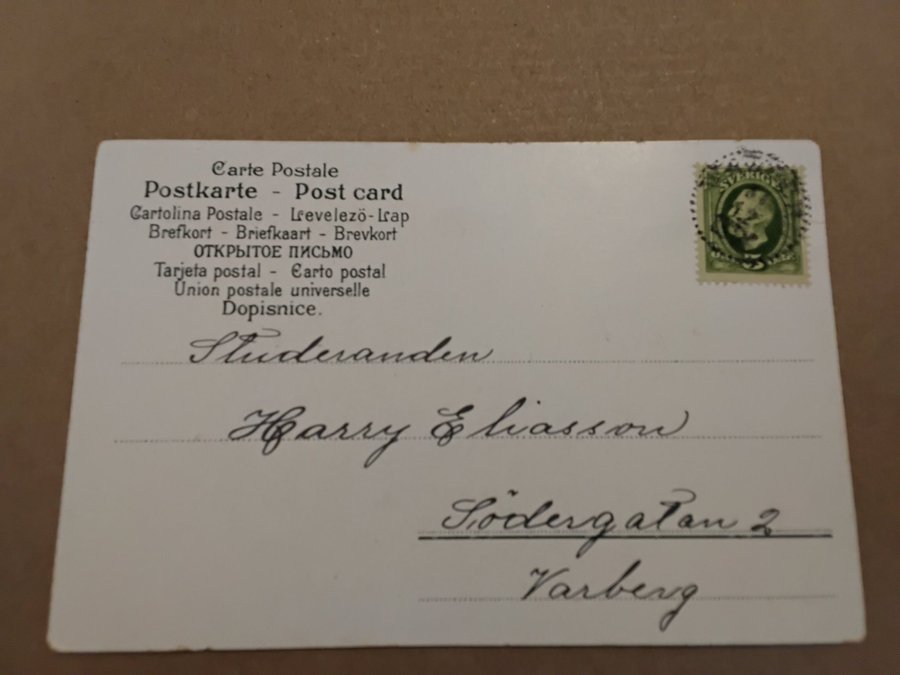 Carte Postale
Postkarte - Post card
Cartolina Postale - Levelezö-Lap
Brefkort - Briefkaart - Brevkort
ОТКРЫТОЕ ПИСЬМО
Tarjeta postal - Carto postal
Union postale universelle
Dopisnice.
SVERIGE
5
Studeranden
Harry Eliasson
Södergatan 2
Varberg